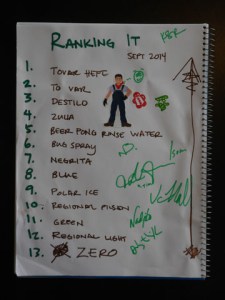 RANKING IT
SEPT 2014
1. TOVAR HEFE
2. TO VAIR
3. DESTILO
4. ZULIA
5. BEER PONG RINSE WATER
6. BUG SPRAY
7. NEGRITA
8. BLUE
9. POLAR ICE
10. REGIONAL PILSEN
11. GREEN
12. REGIONAL LIGHT
13. ZERO